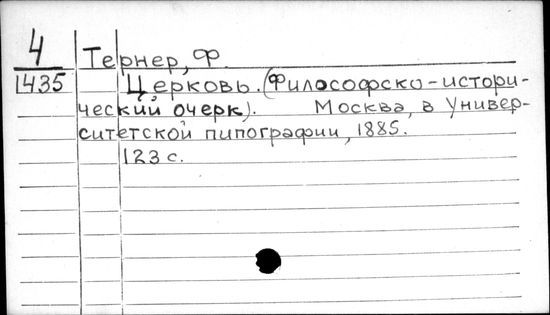 4 Тернер, Ф.
1435 Церковь. (Философско-истори-
ческий очерк). Москва, в Универ-
ситетской пипографии, 1885.
123 с.